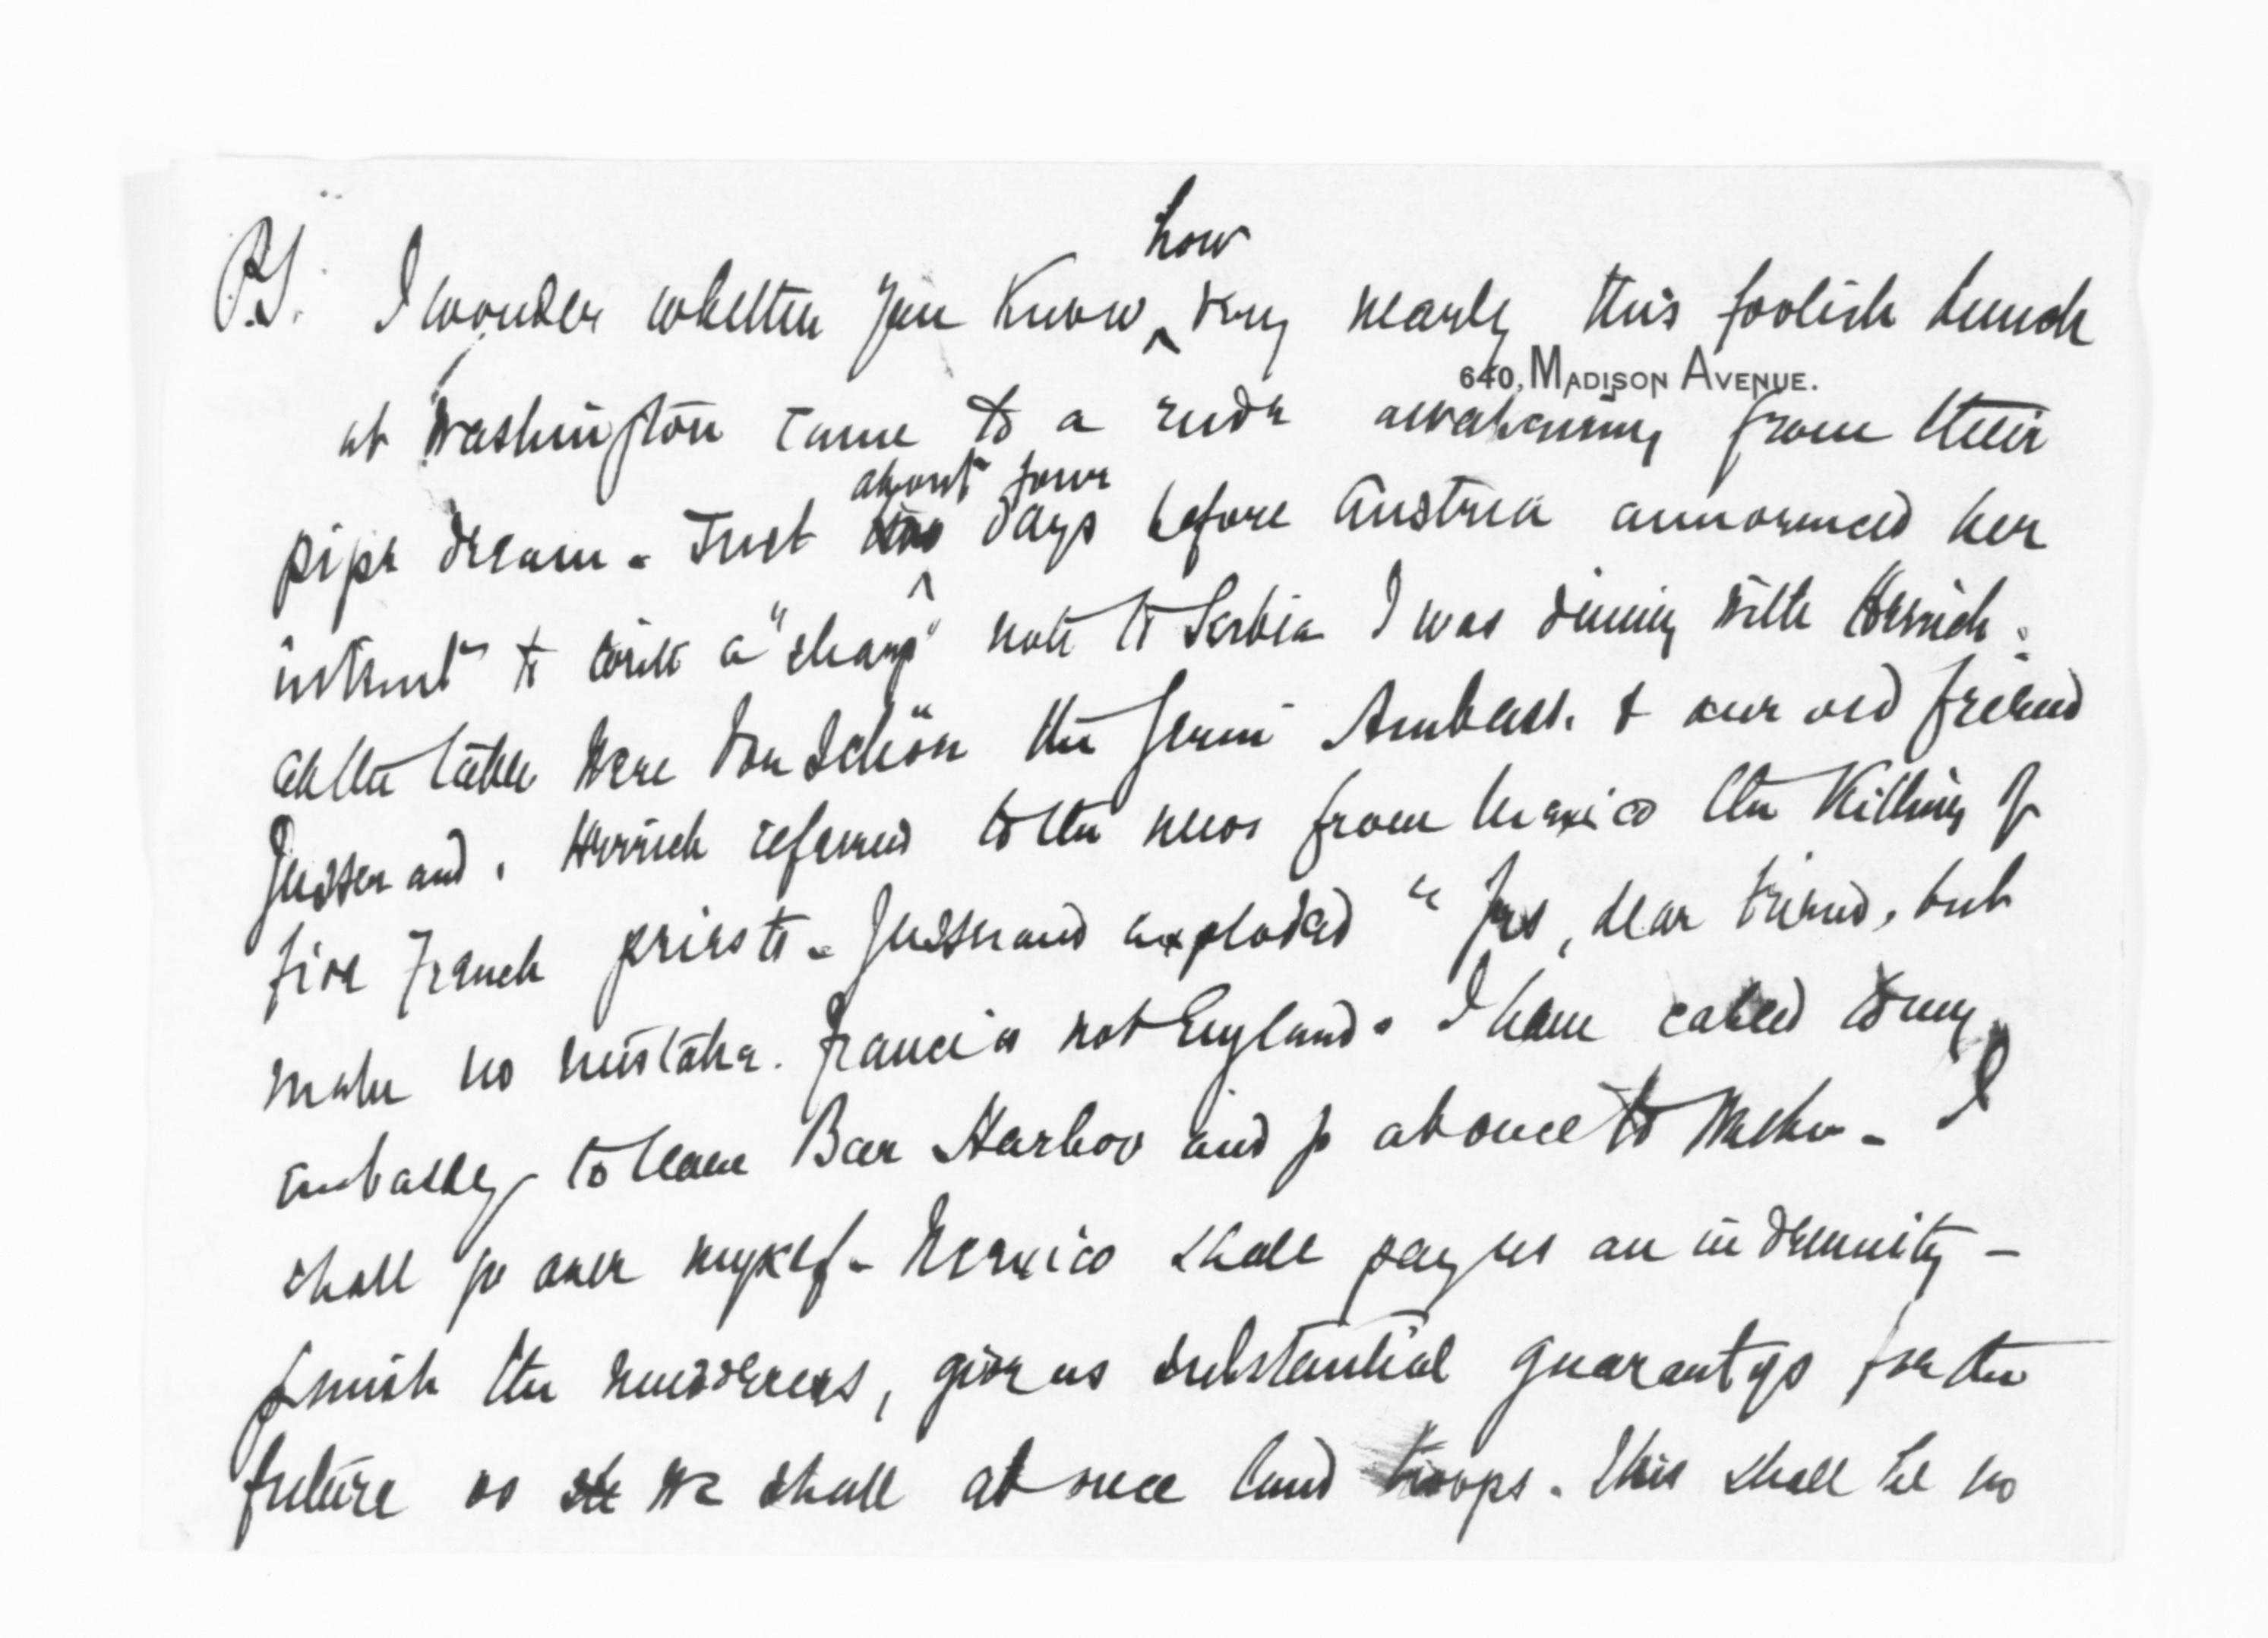 how
P.S. I wonder whether you know ^ very nearly this foolish bunch
640, MADISON AVENUE.
at Washington came to a rude awakening from their
about four
pipe dream. Just two days before Austria announced her
^
intent to write a "sharp" note to Serbia I was dining with Herrick.
at the table were Von Schön the Germ Ambass. & our old friend
Jusserand. Herrick referred to the news from Mexico the killing of
five French priests. Jusserand exploded "Yes, dear friend, but
make no mistake. France is not England. I have cabled to my
embassy to leave Bar Harbor and go at once to Washn. I
shall go over myself. Mexico shall pay us an indemnity -
punish the murderers, give us substantial guarantys for the
future or she we shall at once land troops. This shall be no